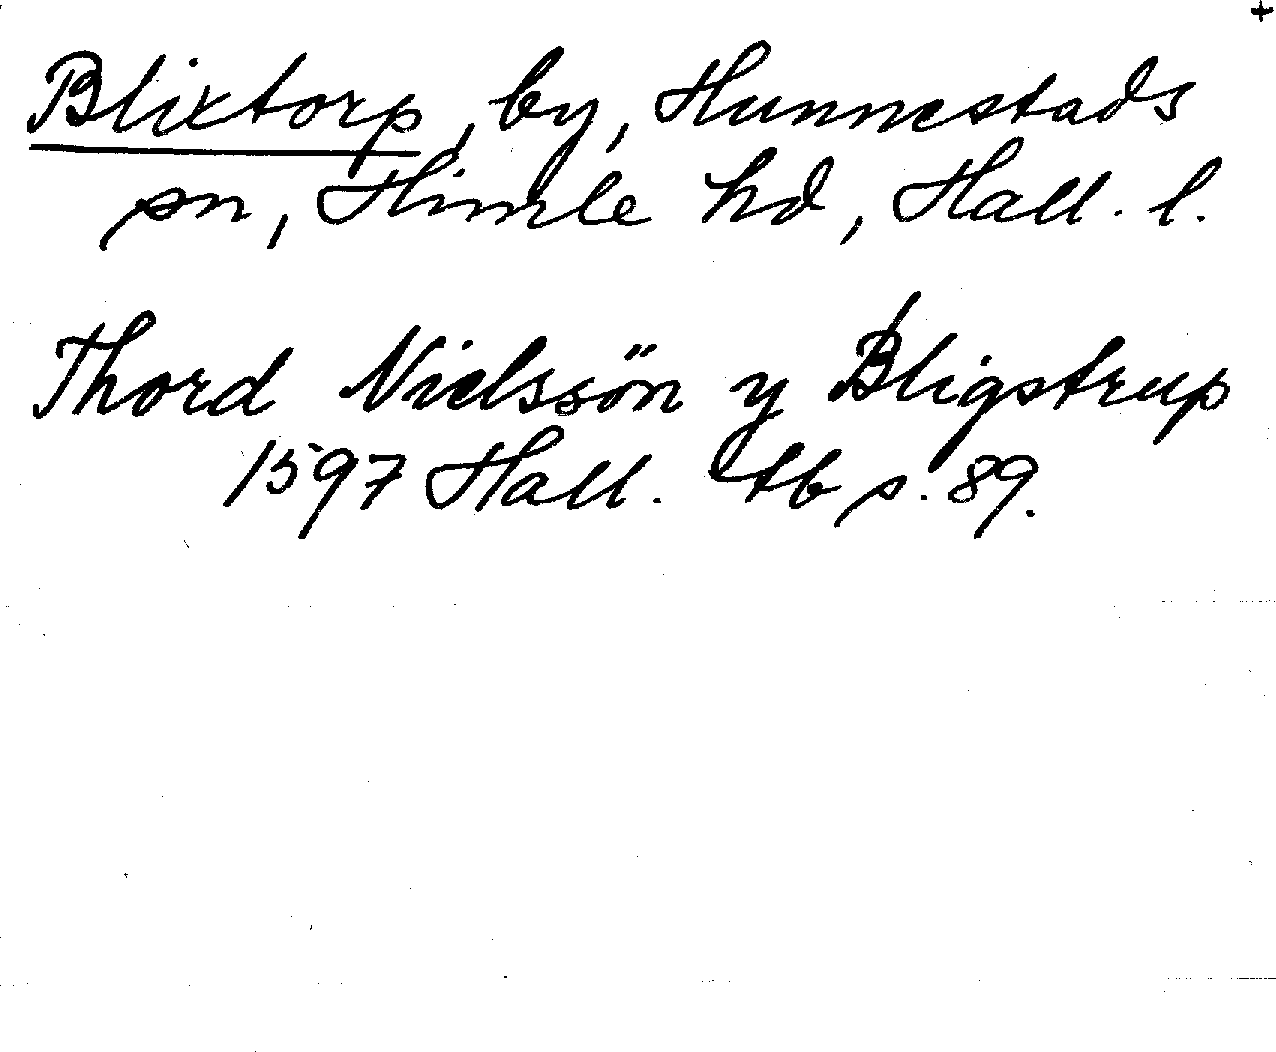 +
Blixtorp, by, Hunnestads
sn, Himle hd, Hall. l.
Thord Nielssön y Bligstrup
1597 Hall. tb s. 89.